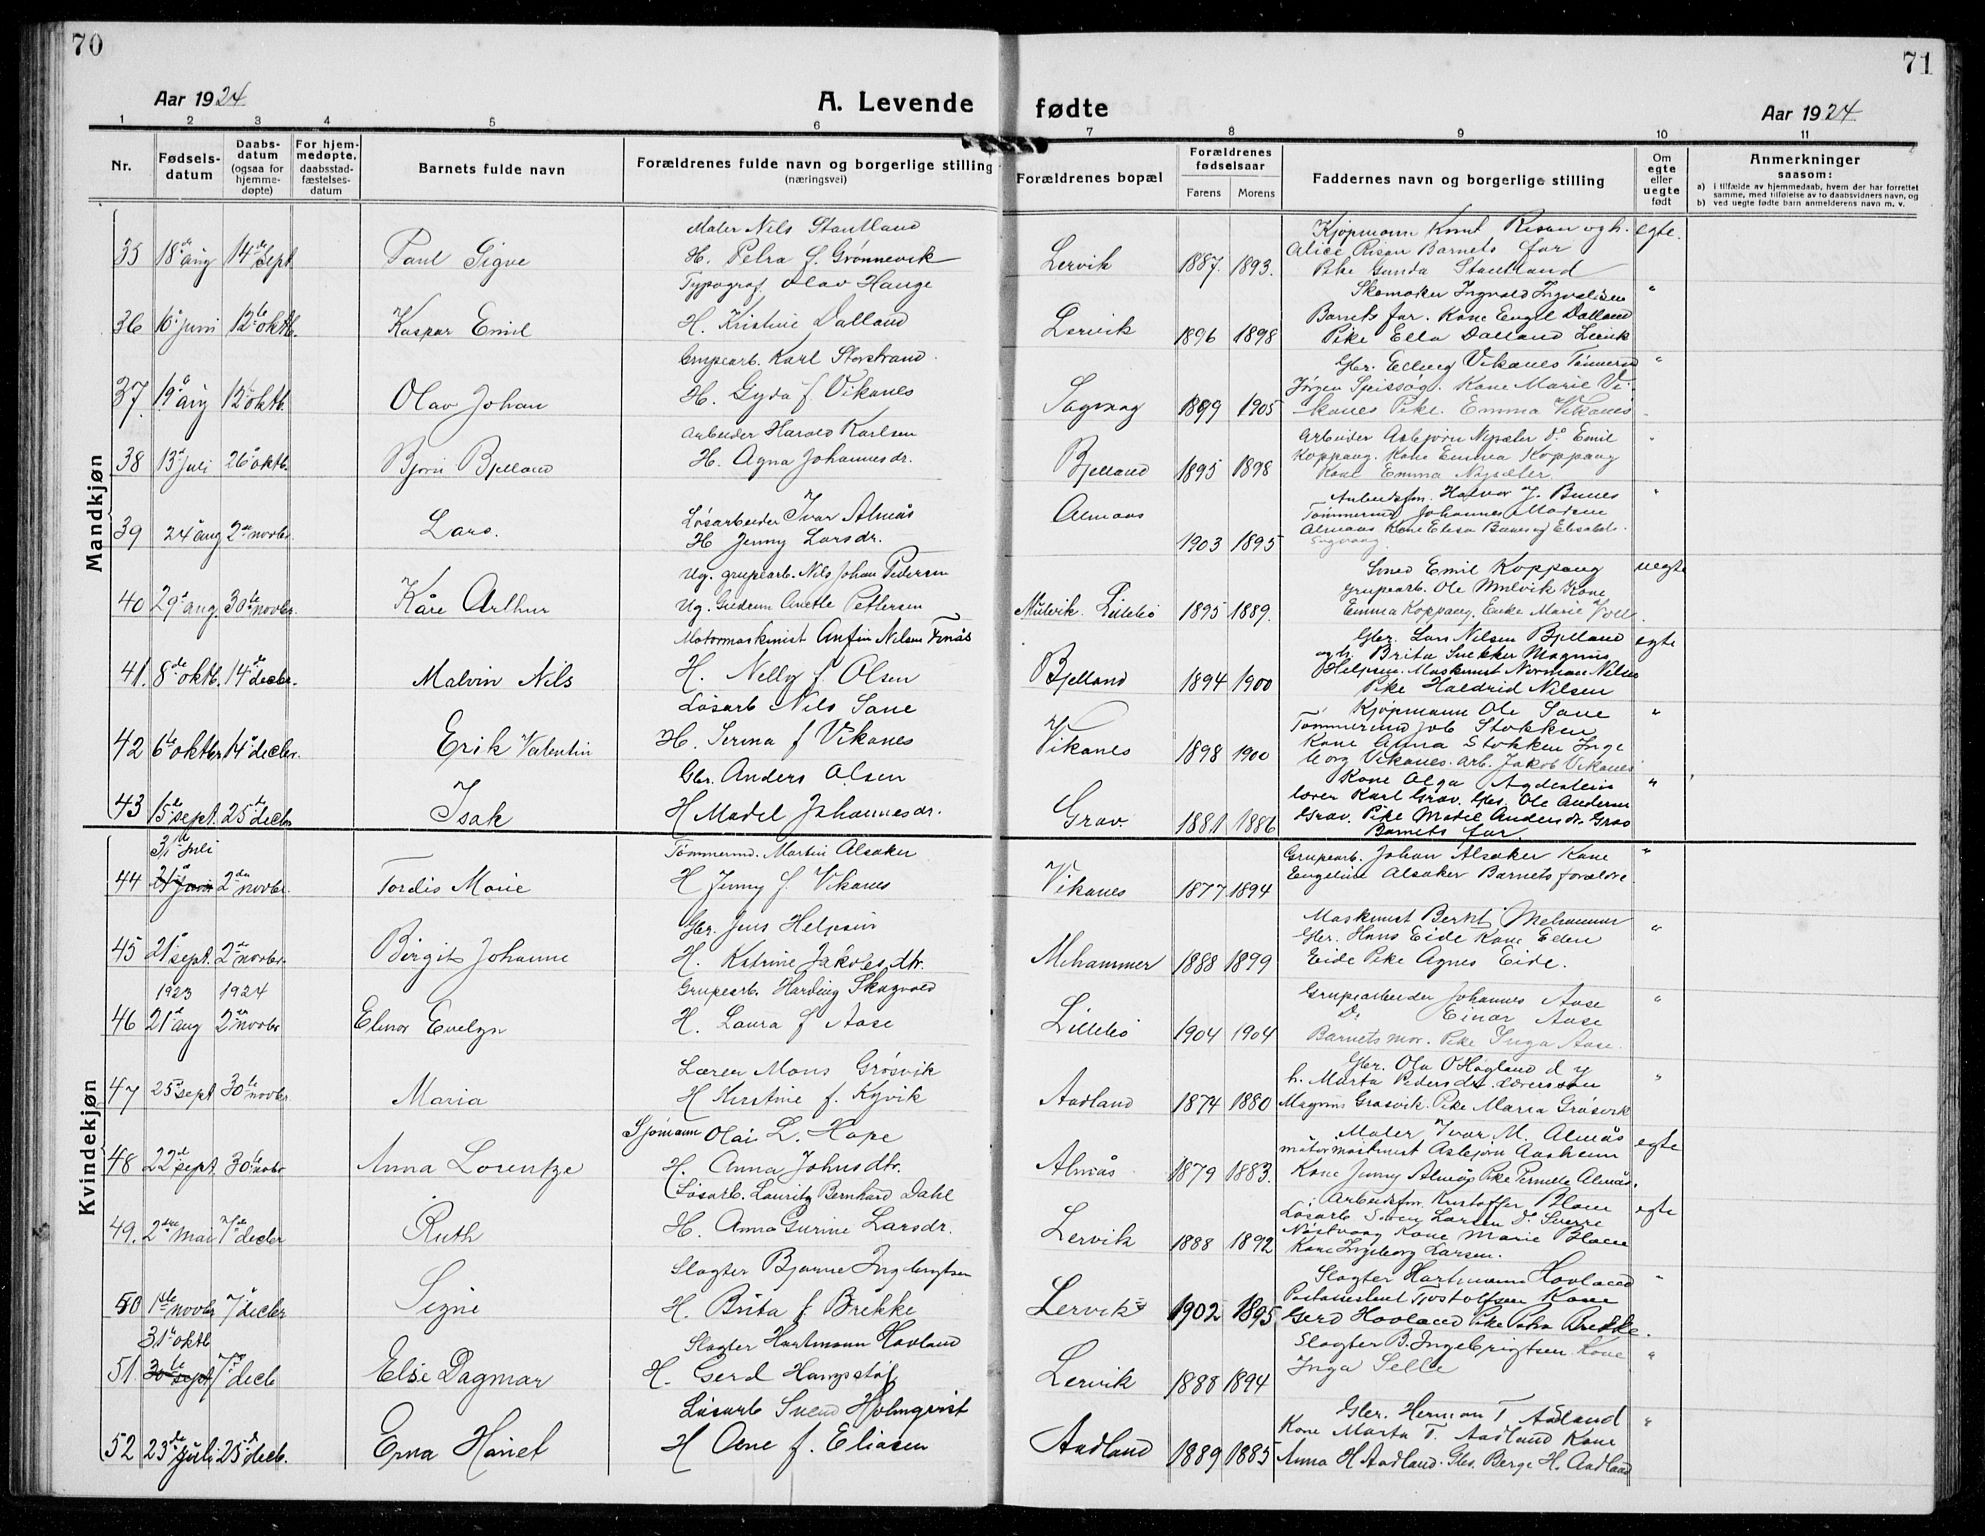 70
71
Aar 1924
A. Levende fødte
Aar 1924
1 2 3 4 5 6 7 8 9 10 11
Nr.
Fødselsdatum
Daabsdatum (ogsaa for hjemmedøpte)
For hjemmedøpte, daabsstadfæstelsesdatum
Barnets fulde navn
Forældrenes fulde navn og borgerlige stilling (næringsvei)
Forældrenes bopæl
Forældrenes fødselsaar
Farens Morens
Faddernes navn og borgerlige stilling
Om egte eller uegte født
Anmerkninger saasom:
a) i tilfælde av hjemmedaab, hvem der har forrettet samme, med tilføielse av to daabsvidners navn, og
b) ved uegte fødte barn anmelderens navn m. v.
Mandkjøn
Maler Nils Stautland Kjøpmann Knut Risan og h. egte.
35 18de aug 14de sept Paul Signe H. Petra f. Grønnevik Lervik 1887. 1893. Alice Risan Barnets far
Pike Gunda Stautland
Typograf Olav Hauge Skomaker Ingvald Ingvaldsen "
36 16 juni 12te oktb. Kaspar Emil H. Kristine Dalland Lervik 1896 1898 Barnets far. Kone Engel Dalland
Pike Ella Dalland Lervik
Grupearb. Karl Storstrand Gbr. Elling Vikanes Tømmermd "
37. 19 aug 12 oktb. Olav Johan H. Gyda f Vikanes Sagvaag 1899 1905 Jørgen Spissøy. Kone Marie Vikanes
Pike. Emma Vikanes
Arbeider Harald Karlsen Arbeider Asbjørn Nysæter Do Emil "
38 13 juli 26 oktb. Bjørn Bjelland H. Agna Johannesdr. Bjelland 1895 1898 Koppang. Kone Emma Koppang
Kone Emma Nysæter
Arbeidsfm. Halvor J. Bunes "
39 24 aug 2den novbr. Lars. Løsarbeider Ivar Almås Almaas 1903 1895 Tømmermd Johannes Madsen
H Jenny Larsdr. Almaas Kone Elisa Bunes
Ug. grupearb. Nils Johan Pedersen Emil Koppang uegte
40 29 aug. 30te novbr. Kåre Arthur Ug. Gudrun Anette Pettersen Mulvik. Lillebø 1895 1889. grupearb. Ole Mulvik Kone
Emma Koppang. Enke Marie Voll.
Motormaskinist Anfin Nilsen Gbr. Lars Nilsen Bjelland egte
41. 8de oktb. 14de decbr. Malvin Nils H. Nelly f Olsen Bjelland 1894 1900 og h. Brita Snekker Magnus
Helpsen. Maskinist Norman Nilsen
Pike Haldrid Nilsen
Løsarb Nils Sane Kjøpmann Ole Sane "
42 6te oktbr 14de decbr. Erik Valentin H. f Vikanes Vikanes 1898 1900 Tømmermd Job Stokken
Kone Anna Stokken Ingeborg Vikanes. Arb. Jakob Vikanes
Gbr. Anders Olsen Kone Olga "
43 15de sept. 25de decbr Isak H Madel Johannesdr. Grav. 1881 1886 Karl Grav. Gbr. Ole Andersen
Grav. Pike Madel Andersdr. Grav
Barnets far.
Kvindekjøn
31te juli Tømmermd. Martin Alsaker Grupearb. Johan Alsaker Kone "
44 21 juni 2den novbr. Tordis Marie H Jenny f. Vikanes Vikanes 1877 1894 Engeline Alsaker Barnets forældre
Gbr. Jens Helpsen Maskinist Bernt Mehammer "
45 21 sept. 2den novbr. Birgit Johanne H. Katrine Jakobsdtr. Mehammer 1888 1899 Gbr. Hans Eide Kone Eden
Eide Pike Agnes Eide.
1923 1924 Grupearb. Harding Skogvold Grupearbeider Johannes Aase "
46 21de aug 2den novbr Elinor Evelyn H. Laura f Aase Lillebø 1904 1904 Do Einar Aase
Barnets mor. Pike Inga Aase.
Lærer Mons Grøsvik Gbr. Ola O Høgland
47 25 sept 30te novbr. Maria H Kirstine f. Kyvik Aadland 1874 1880 h. Marta Pedersdr. "
Magnus Grøsvik. Pike Maria Grøsvik
Sjømann Olai L. Hope Maler Ivar M. Almås egte
48 22de sept 30te novbr Anna Lorentze H. Anna Johnsdtr. Almås 1879 1883. motormaskinist Asbjørn Aasheim
Kone Jenny Almås Pike Pernille Almås.
Løsarb. Lauritz Bernhard Dahl Arbeidsfm Kristoffer Bloen egte
49. 2den mai 7de decbr Ruth H. Anna Gurine Larsdr. Lervik 1888 1892 Løsarb Sven Larsen Do Sverre
Kone Marie Bloen
Kone Ingeborg Larsen.
Slagter Bjarne Ingebrigtsen Slagter Hartmann Hovland "
50 1ste novbr 7de decbr Signe H. Brita f Brekke Lervik 1902 1895 Tjostolfsen Kone
Gerd Hovland Pike Petra Brekke.
31te oktb Slagter Hartmann Hovland Slagter B. Ingebrigtsen Kone "
51. 30te sept 7de decb Else Dagmar H. Gerd Lervik 1888 1894 Inga Selle
Løsarb Svend Holmqvist Gbr. Herman T Aadland "
52 23de juli 25de decb. Erna H Ane f. Eliasen Aadland 1889 1885 Kone Marta T. Aadland Kone
Anna H Aadland. Gbr. Berge H. Aadland